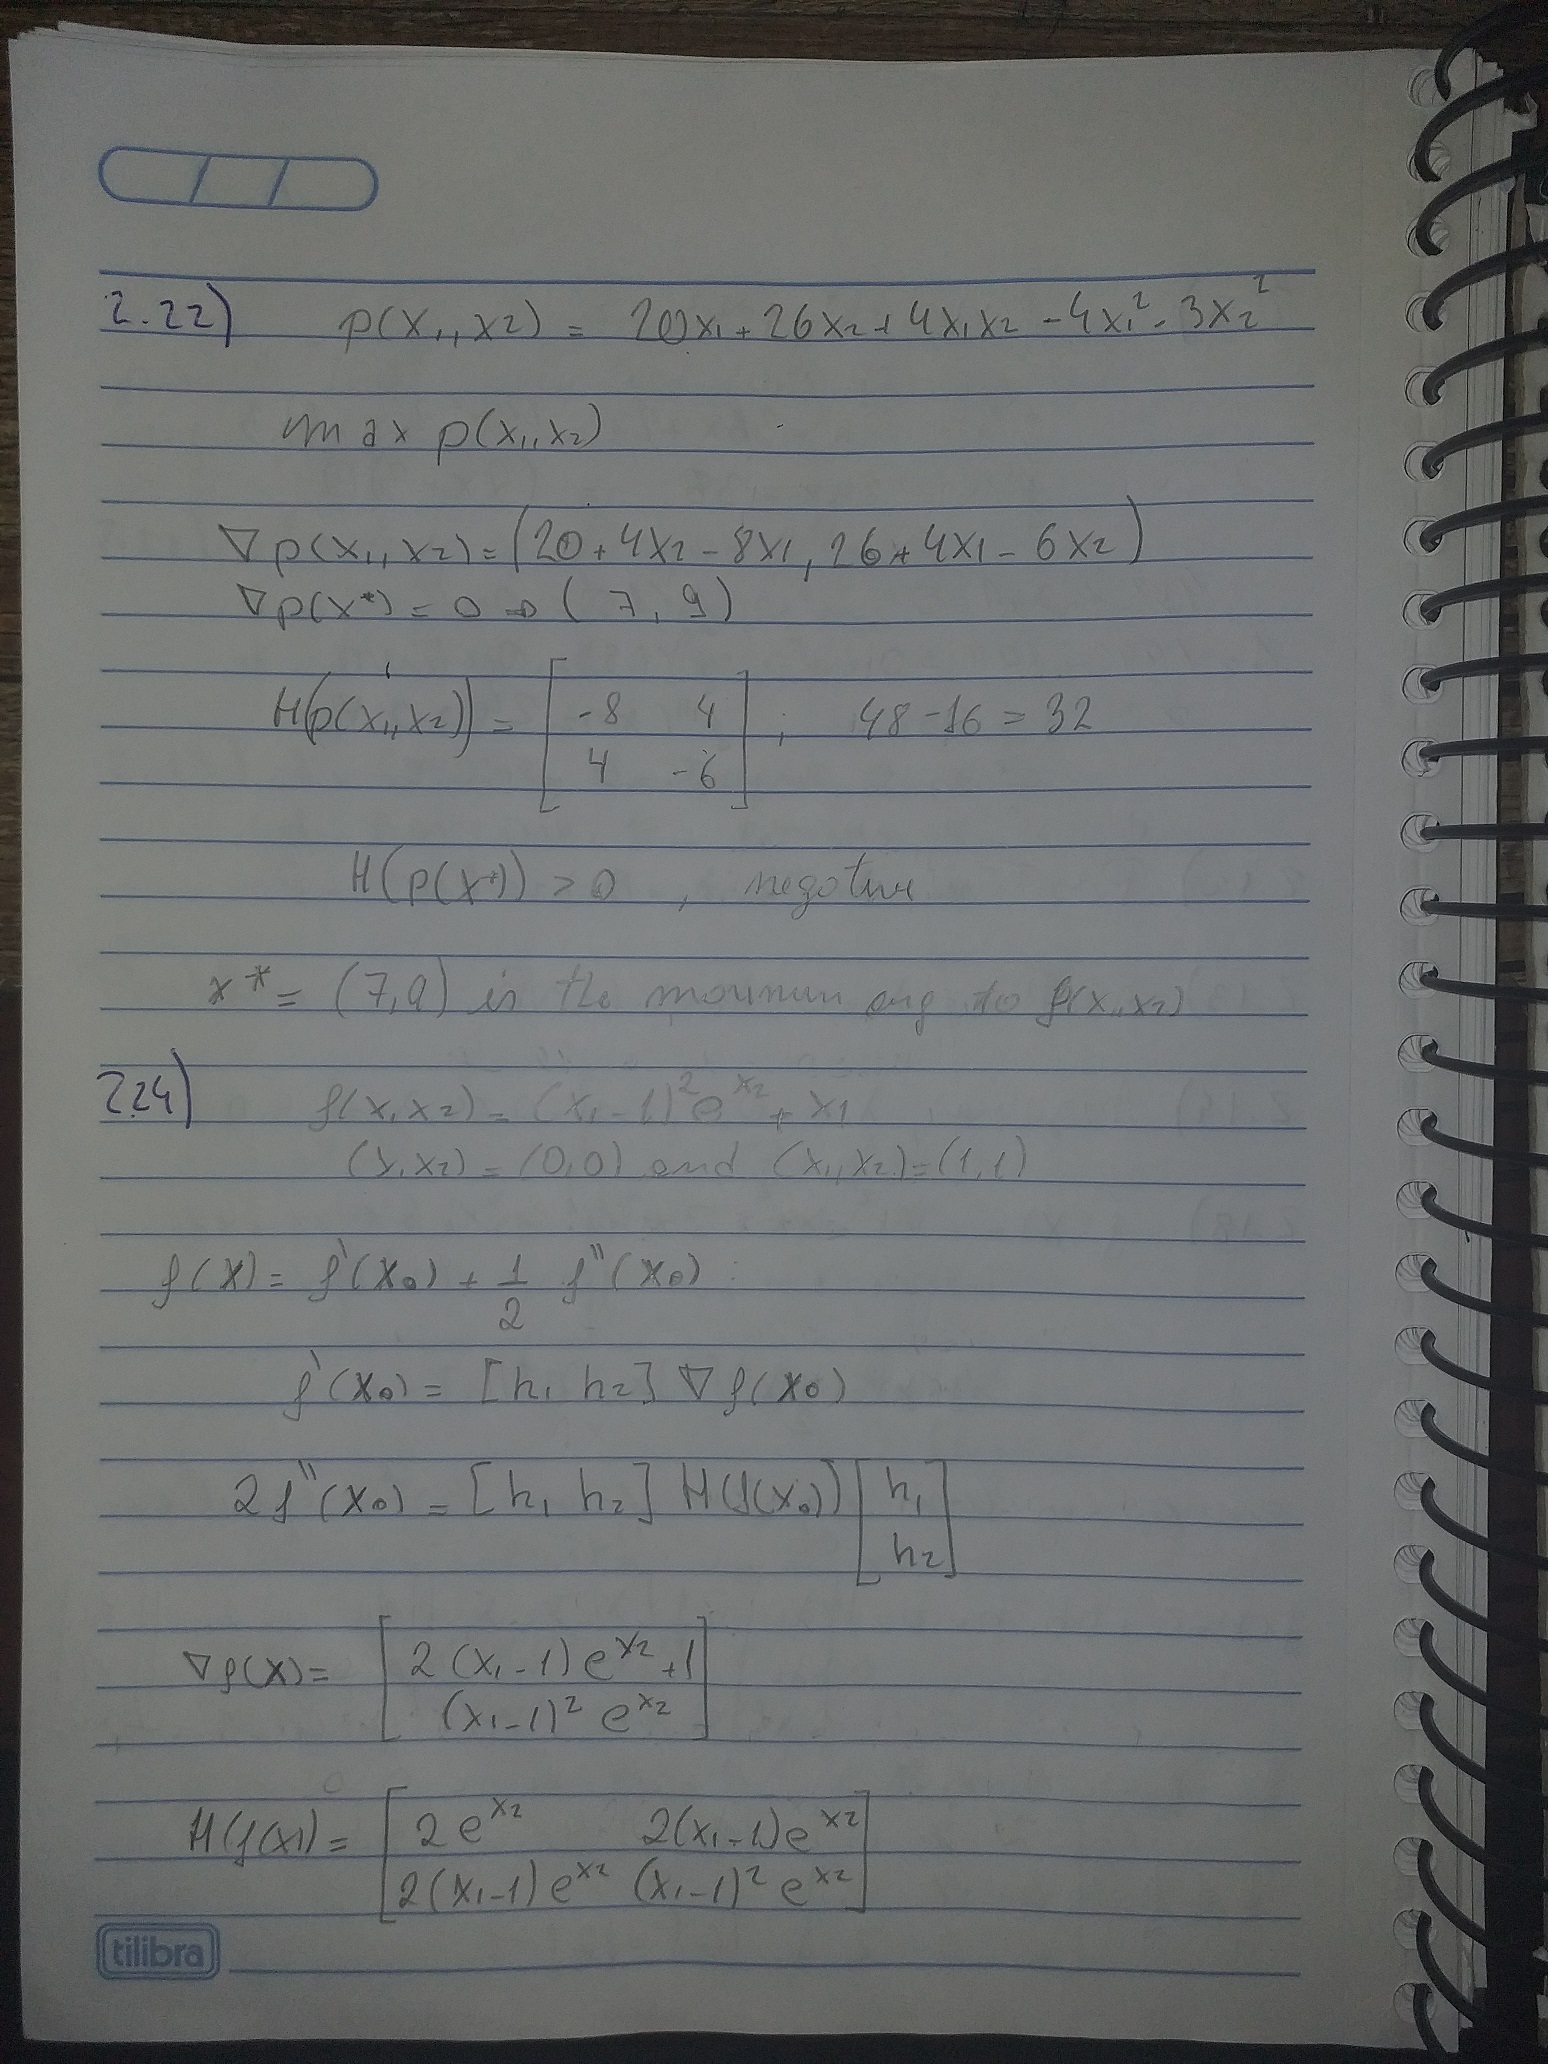 2.22) p(x₁, x₂) = 20x₁ + 26x₂ + 4x₁x₂ - 4x₁² - 3x₂²
max p(x₁, x₂)
∇p(x₁, x₂) = (20 + 4x₂ - 8x₁, 26 + 4x₁ - 6x₂)
∇p(x*) = 0 ⇒ (7, 9)
H(p(x₁, x₂)) = [-8 4; 48 - 16 = 32
4 -6]
H(p(x*)) > 0, negative
x* = (7, 9) is the arg to f(x₁, x₂)
2.24) f(x₁ x₂) = (x₁ - 1)² e^x₂ + x₁
(x₁ x₂) = (0,0) and (x₁, x₂) = (1,1)
f(x) = f'(x₀) + 1/2 f''(x₀)
f'(x₀) = [h₁ h₂] ∇f(x₀)
2f''(x₀) = [h₁ h₂] H(f(x₀)) [h₁
h₂]
∇f(x) = [2(x₁ - 1) e^x₂ + 1
(x₁ - 1)² e^x₂]
H(f(x)) = [2e^x₂ 2(x₁ - 1) e^x₂
2(x₁ - 1) e^x₂ (x₁ - 1)² e^x₂]
tilibra